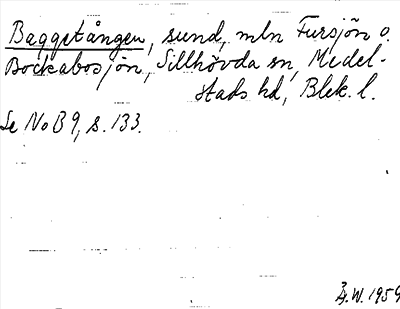 Baggetången, sund, mln Fursjön o.
Bockabosjön, Sillhövda sn, Medel-
stads hd, Blek. l.
Se NoB 9, s. 133.
B.W. 1959